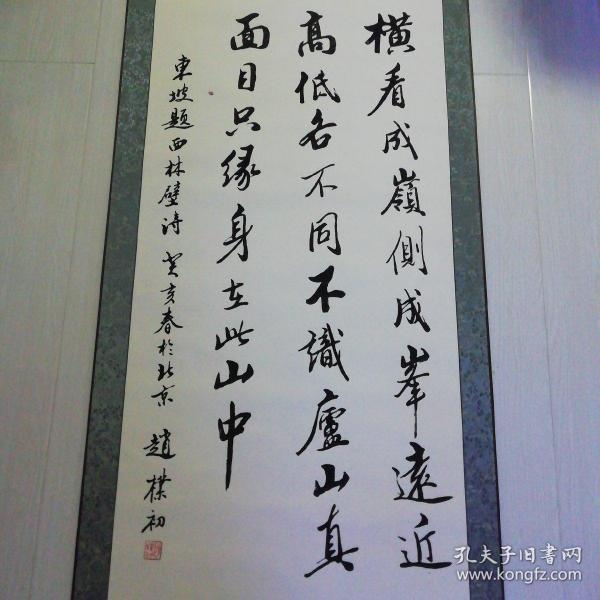 橫看成嶺側成峯遠近
高低各不同不識廬山真
面目只緣身在此山中
東坡题西林壁诗 癸亥春於北京 趙樸初
孔夫子旧书网
www.kongfz.com